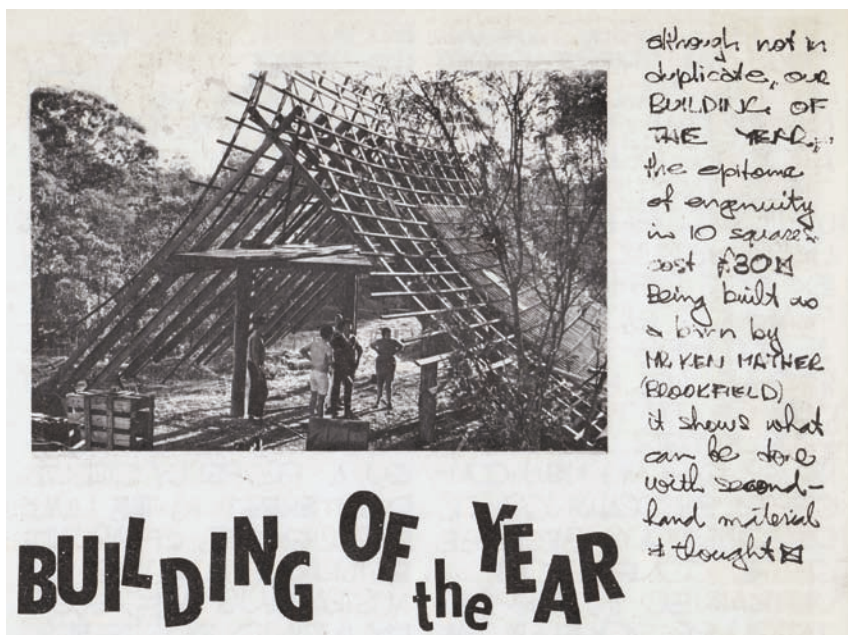 although not in
duplicate, our
BUILDING OF
THE YEAR,
the epitome
of engenuity
in 10 squares
cost £30
Being built as
a barn by
MR KEN MATHER
(BROOKFIELD)
it shows what
can be done
with second-
hand material
& thought
BUILDING OF the YEAR